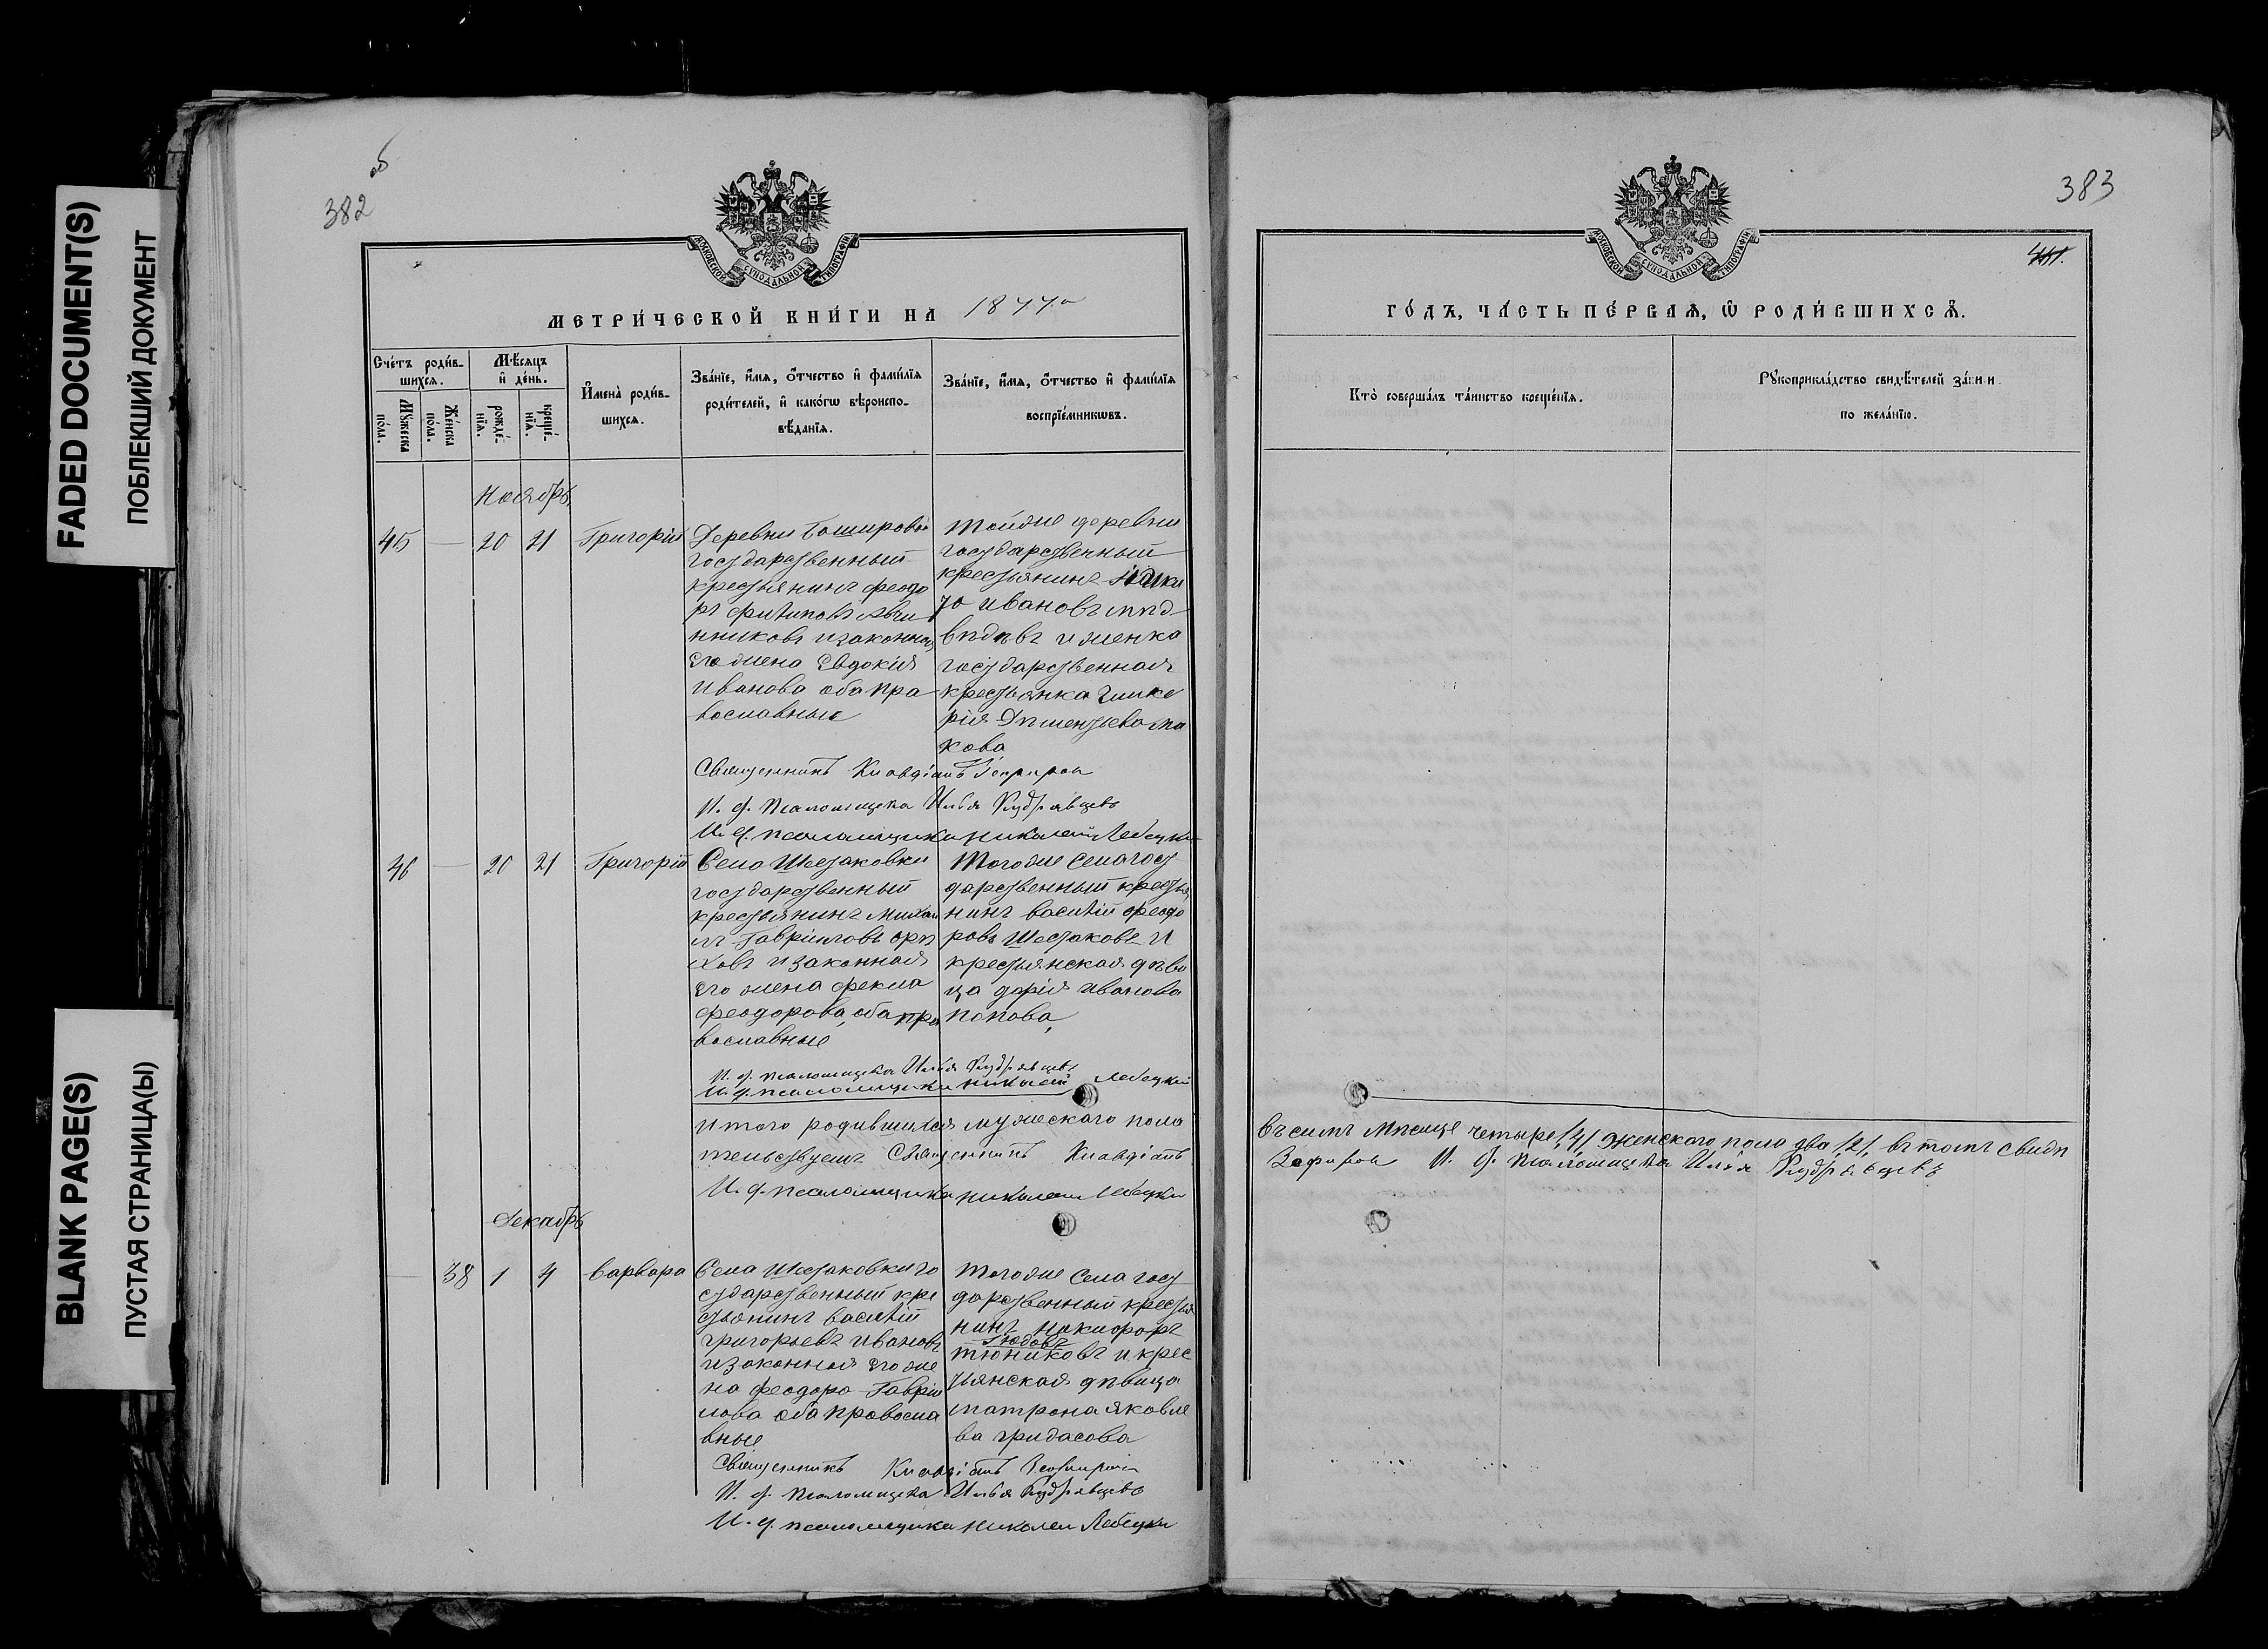 FADED DOCUMENT(S)
ПОБЛЕКШИЙ ДОКУМЕНТ
BLANK PAGE(S)
ПУСТАЯ СТРАНИЦА(Ы)
382 об
МОСКОВСКОЙ СУНОДАЛЬНОЙ ТИПОГРАФІИ
МЕТРИ́ЧЕСКОЙ КНИ́ГИ НА 1877.
Сче́тъ роди́в-
шихсѧ.
Мѣ́сѧцъ
и҆ де́нь.
Му́жеска по́ла.
Же́нска по́ла.
рожде́-
нїѧ.
креще́-
нїѧ.
И҆мена̀ роди́в-
шихсѧ.
Зва́нїе, и҆́мѧ, ѻ҆́тчество и҆ фами́лїѧ
роди́телей, и҆ како́гѡ вѣроиспо-
вѣ́данїѧ.
Зва́нїе, и҆́мѧ, ѻ҆́тчество и҆ фами́лїѧ
воспрїе́мникѡвъ.
Ноябрь
45 — 20 21 Григорій
Деревни Башировой
государственный
крестьянинъ Феодо
ръ Филиповъ
и законная
его жена Евдокия
Иванова оба пра
вославные
Тойже деревни
государственный
крестьянинъ Ники
та Ивановъ
и женка
государственная
крестьянка Глике
рія
кова
Священникъ Клавдіанъ
И. д. псаломщика Илья Кудрявцевъ
И. д. псаломщика Николай Лебедкин
46 — 20 21 Григорій
Села Шестаковки
государственный
крестьянинъ Михаи
лъ Гавріиловъ Орѣ
ховъ и законная
его жена Фекла
Феодорова, оба пра
вославные
Тогоже Села госу
дарственный крестья
нинъ Василій Феодо
ровъ Шестаковъ и
крестьянская дѣви
ца Дарія Иванова
Попова,
И. д. псаломщика Илья Кудрявцевъ
И. д. псаломщика Николай
Итого родившихся мужескаго пола
тельствуемъ Священникъ Клавдіанъ
И. д. псаломщика Николай
Декабрь
— 38 1 4 Варвара
Села Шестаковки го
сударственный кре
стьянинъ Василій
Григорьевъ Ивановъ
и законная его же
на Феодора Гаврії
лова оба правосла
вные
Тогоже Села госу
дарственный крестья
нинъ Никифоръ
Тюниковъ и крес
тьянская дѣвица
Матрона Яковле
ва Гридасова
Священникъ Клавдіанъ
И. д. псаломщика Илья Кудрявцевъ
И. д. псаломщика Николай
383
МОСКОВСКОЙ СУНОДАЛЬНОЙ ТИПОГРАФІИ
ГО́ДЪ, ЧА́СТЬ ПЕ́РВАѦ, Ѡ҆ РОДИ́ВШИХСѦ.
Кто̀ соверша́лъ та́инство креще́нїѧ.
Рꙋкоприкла́дство свидѣ́телей за́писи
по жела́нїю.
въ семъ мѣсяцѣ четыре /4/ Женскаго пола два /2/, въ томъ свидѣ
И. д. псаломщика Илья Кудрявцевъ